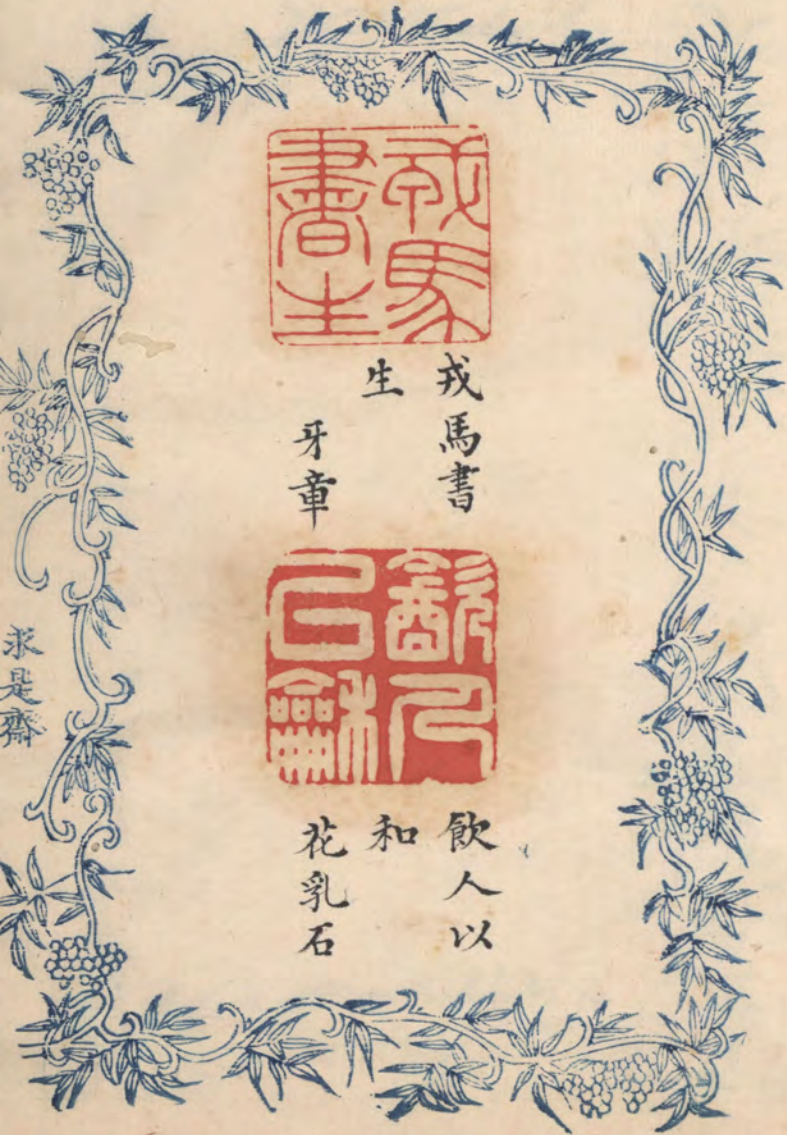 戎馬書生
戎馬書
生
牙章
飲人以龢
飲人以
和
花乳石
求是齋